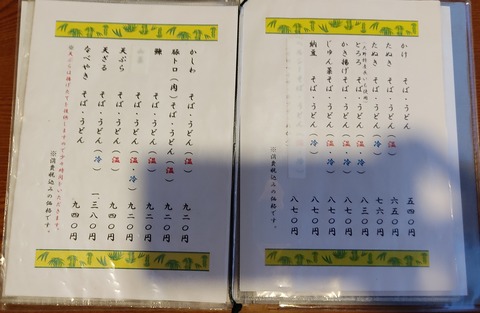 かけ そば・うどん 五四〇円
たぬき そば・うどん(温) 六五〇円
たぬき そば・うどん(冷) 七六〇円
とろろ そば・うどん(冷) 八三〇円
かき揚げそば・うどん(温・冷) 八七〇円
じゅん菜そば・うどん(温・冷) 八七〇円
納豆 そば・うどん(冷) 八七〇円
※消費税込みの価格です。
かしわ そば・うどん(温) 九二〇円
豚トロ(肉)そば・うどん(温) 九二〇円
鰊 そば・うどん(温) 九二〇円
天ぷら そば・うどん(温・冷) 九二〇円
天ざる そば・うどん(冷) 九四〇円
なべやき そば・うどん 一三八〇円
※消費税込みの価格です。